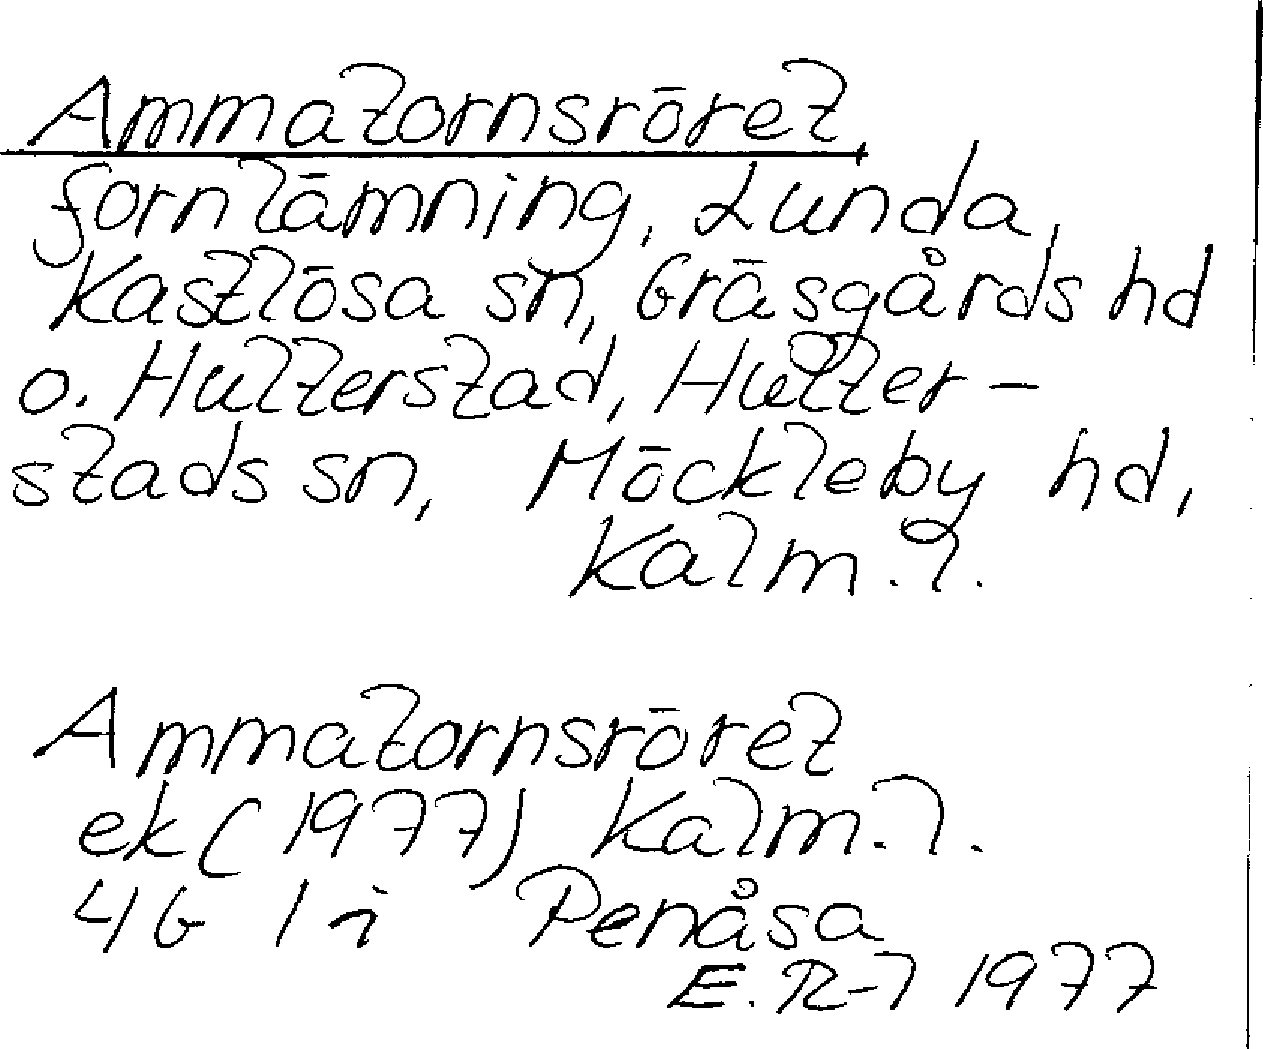 Ammatornsröret,
fornlämning, Lunda,
Kastlösa sn, Gräsgårds hd
o. Hulterstad, Hulter-
stads sn, Möckleby hd,
Kalm. l.
Ammatornsröret
ek (1977) Kalm. l.
4G 1i Penåsa
E. R-l 1977